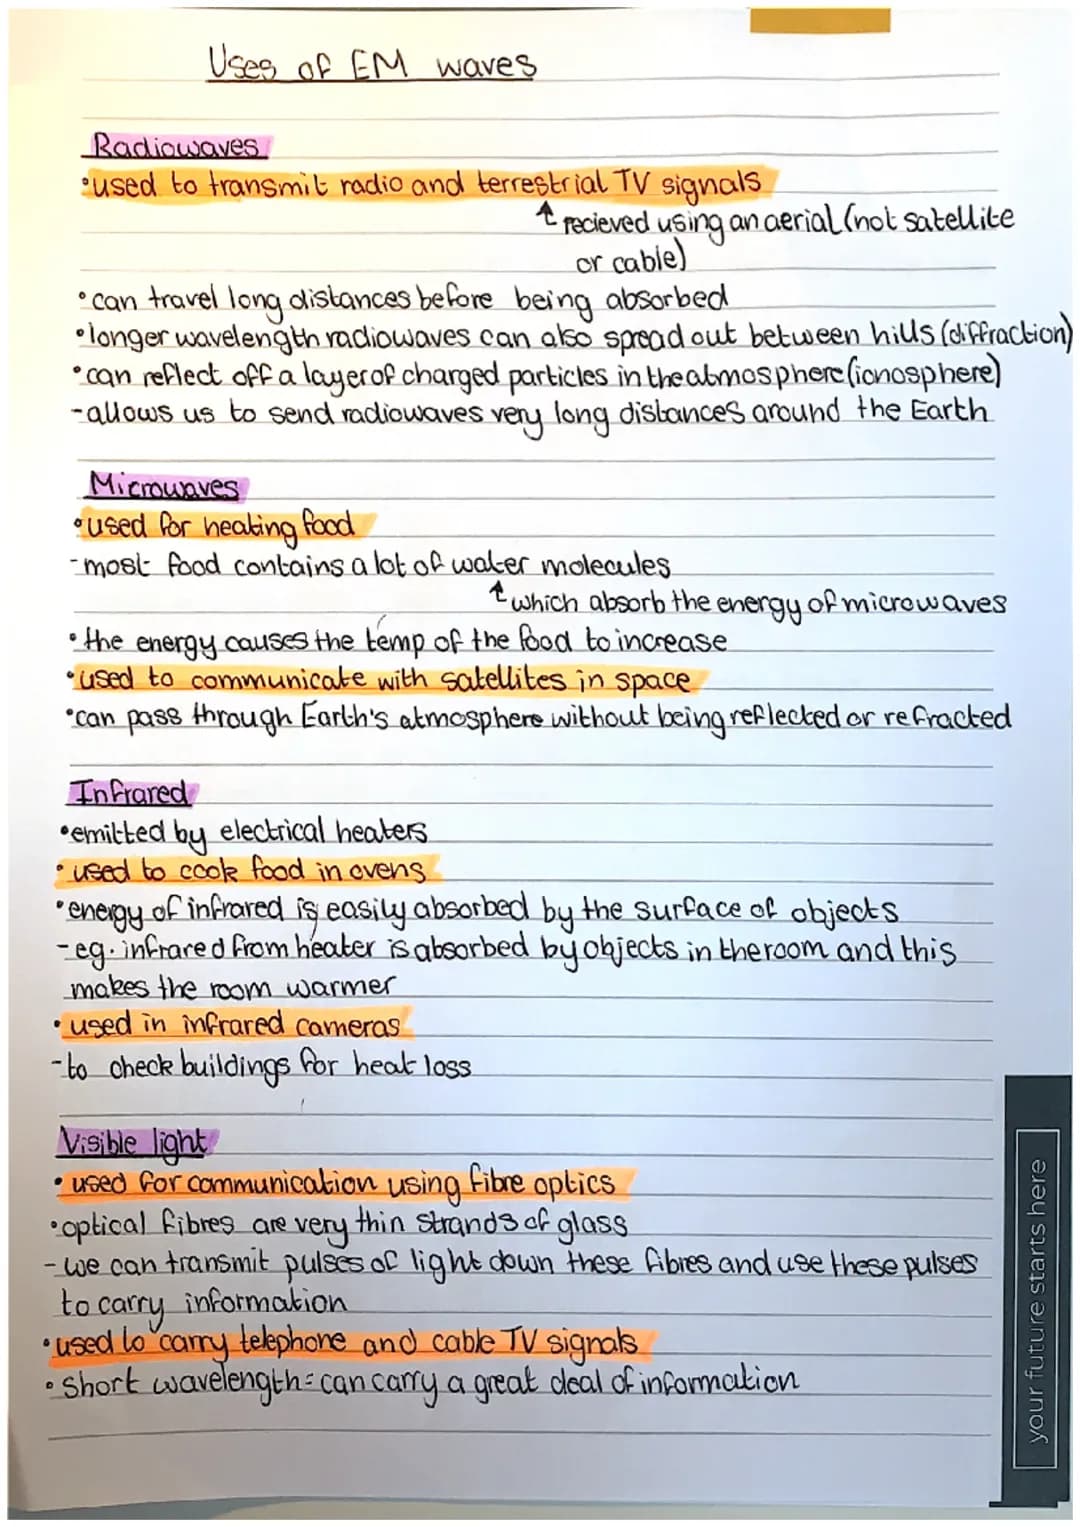 Uses of EM waves
Radiowaves
•used to transmit radio and terrestrial TV signals
↑ recieved using an aerial (not satellite
or cable)
•can travel long distances before being absorbed
•longer wavelength radiowaves can also spread out between hills (diffraction)
•can reflect off a layer of charged particles in the atmosphere (ionosphere)
-allows us to send radiowaves very long distances around the Earth
Microwaves
•used for heating food
-most food contains a lot of water molecules
↑ which absorb the energy of microwaves
•the energy causes the temp of the food to increase
•used to communicate with satellites in space
•can pass through Earth's atmosphere without being reflected or refracted
Infrared
•emitted by electrical heaters
•used to cook food in ovens
•energy of infrared is easily absorbed by the surface of objects
-eg. infrared from heater is absorbed by objects in the room and this
makes the room warmer
•used in infrared cameras
-to check buildings for heat loss
Visible light
•used for communication using fibre optics
•optical fibres are very thin strands of glass
-we can transmit pulses of light down these fibres and use these pulses
to carry information
•used to carry telephone and cable TV signals
•short wavelength = can carry a great deal of information
your future starts here